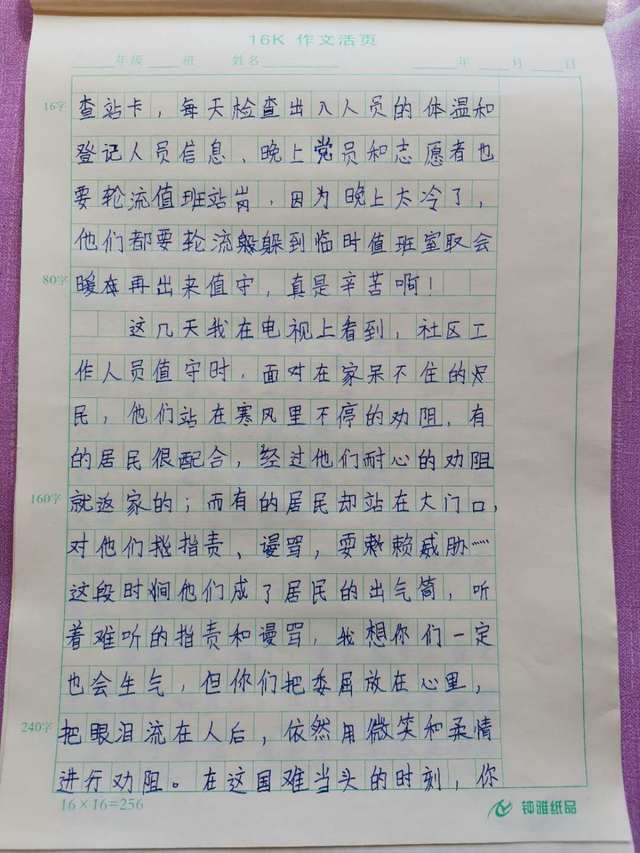 16K 作文活页
年级 班 姓名 年 月 日
16字 查站卡，每天检查出入人员的体温和
登记人员信息、晚上党员和志愿者也
要轮流值班站岗，因为晚上太冷了，
他们都要轮流躲到临时值班室取会
80字 暖 再出来值守，真是辛苦啊！
这几天我在电视上看到，社区工
作人员值守时，面对在家呆不住的
民，他们站在寒风里不停的劝阻，有
的居民很配合，经过他们耐心的劝阻
160字 就返家的；而有的居民却站在大门口，
对他们 指责、谩骂，耍 赖威胁……
这段时间他们成了居民的出气筒，听
着难听的指责和谩骂，我想你们一定
也会生气，但你们把委屈放在心里，
240字 把眼泪流在人后，依然用微笑和柔情
进行劝阻。在这国难当头的时刻，你
16×16=256 钟雅纸品